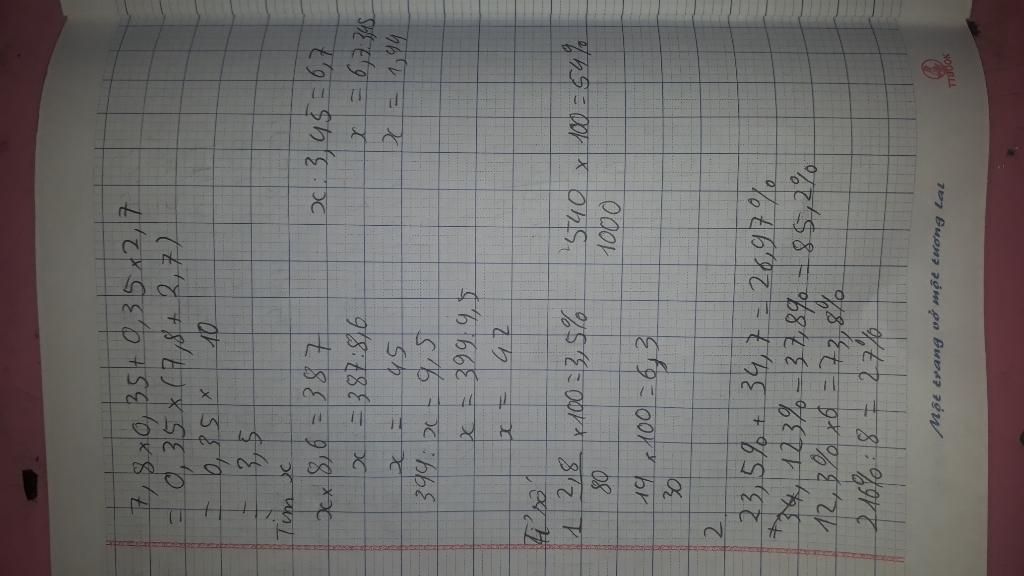 7,8x0,35+0,35x2,7
= 0,35x(7,8+2,7)
= 0,35x 10
= 3,5
Tìm x
x x 8,6 = 387
x = 387:8,6
x = 45
x : 3,45 = 6,7
x = 6,7.345
x = 1,94
399: x = 9,5
x = 399:9,5
x = 42
Tỉ số
1 2,8 x100=3,5%
80
540 x 100=54%
1000
19 x100=6,3
30
2
23,5%+ 34,7 = 26,97%
123% = 37,8% = 85,2%
12,3% x6 = 73,8%
216%:8 = 27%
Một trang vở một tương lai